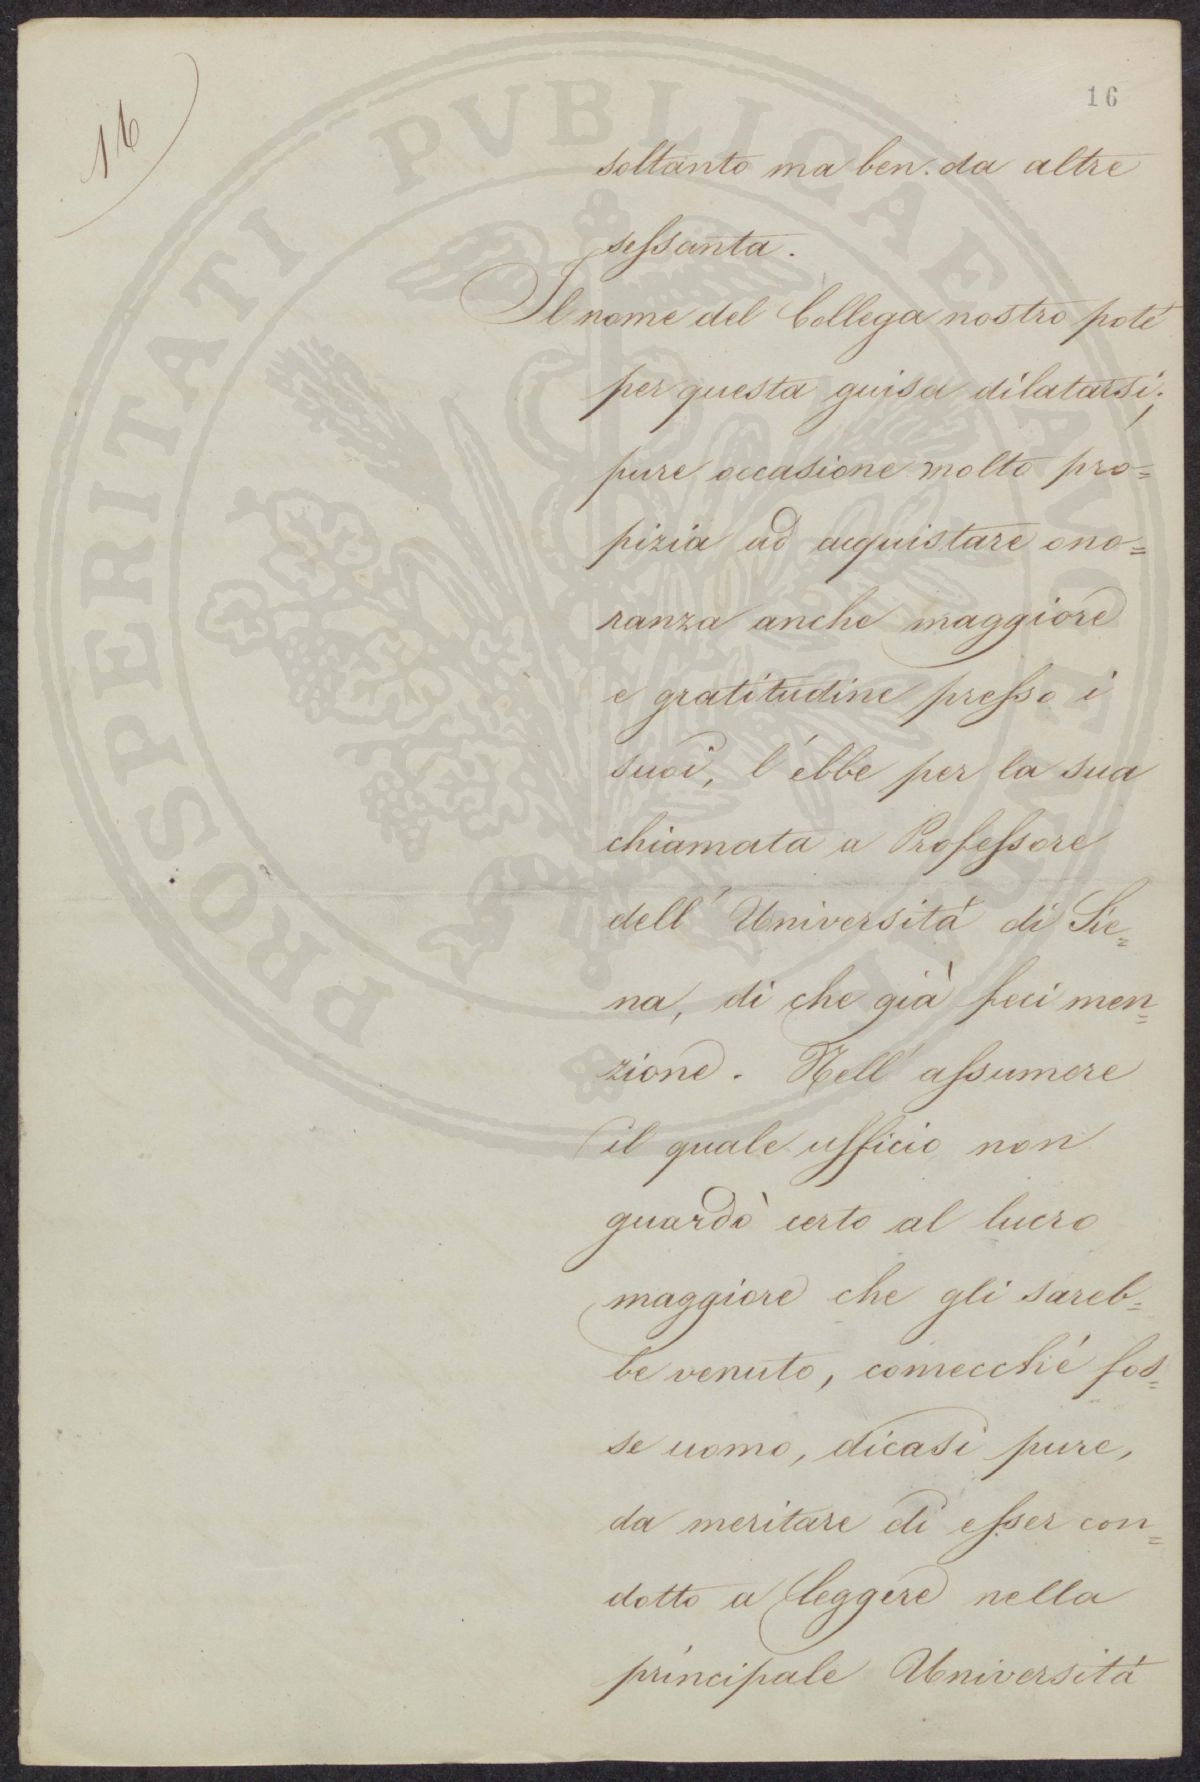 16
16
soltanto ma ben. da altre
sessanta.
Il nome del Collega nostro poté
per questa guisa dilatarsi;
pure occasione molto pro=
pizia ad acquistare ono=
ranza anche maggiore
e gratitudine presso i
suoi, l'ebbe per la sua
chiamata a Professore
dell'Università di Sie=
na, di che già feci men=
zione. Nell'assumere
il quale ufficio non
guardò certo al lucro
maggiore che gli sareb=
be venuto, comecché fos=
se uomo, dicasi pure,
da meritare di esser con=
dotto a leggere nella
principale Università
PROSPERITATI PVBLICAE AVGENDAE